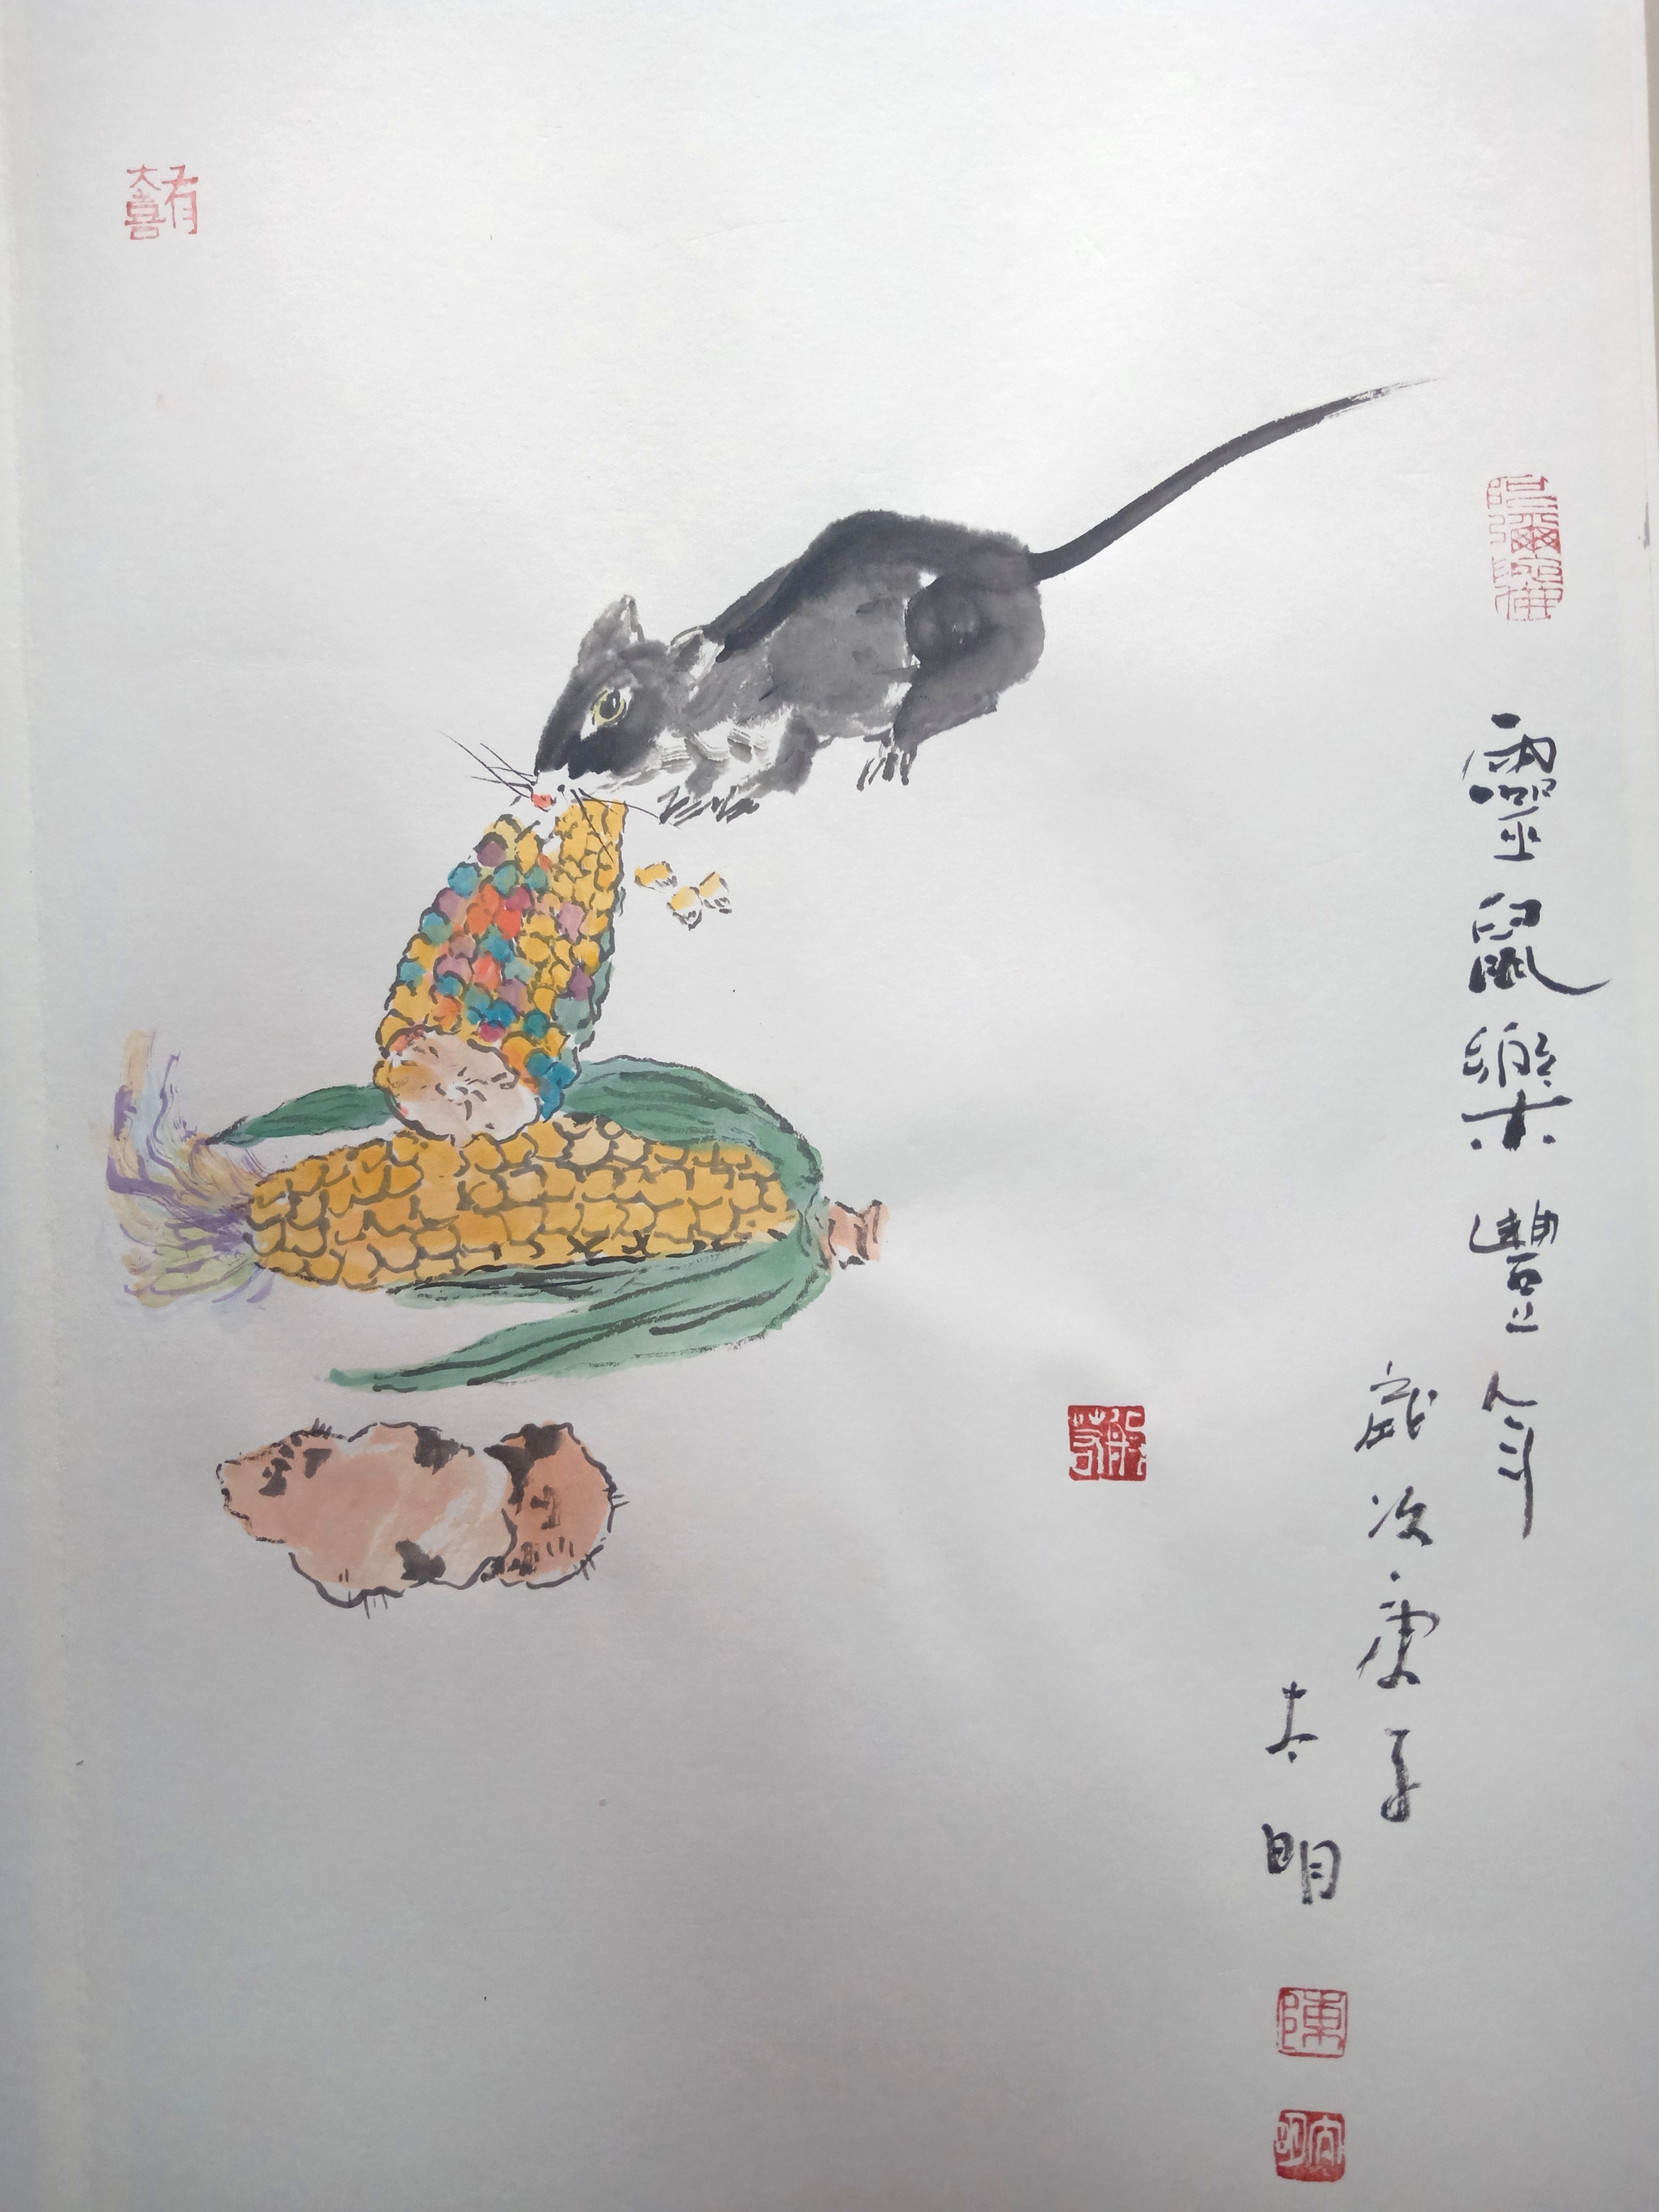 靈鼠樂豐年
歲次庚子
太明
陳
大有喜